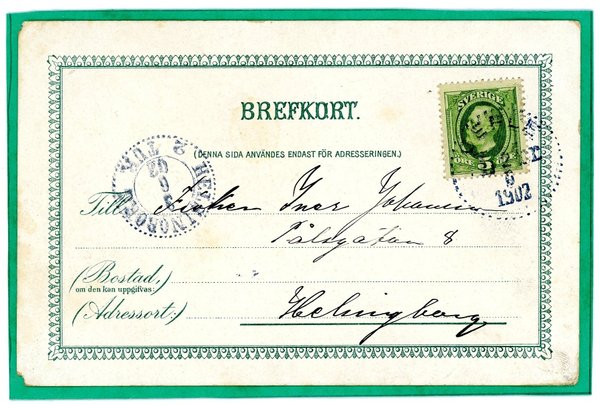 BREFKORT.
SVERIGE
5 ÖRE 5
(DENNA SIDA ANVÄNDES ENDAST FÖR ADRESSERINGEN.)
1902
HELSINGBORG
Till Fröken Iner Johansson
Pålsgatan 8
(Bostad,
om den kan uppgifvas:)
(Adressort:)
Helsingborg